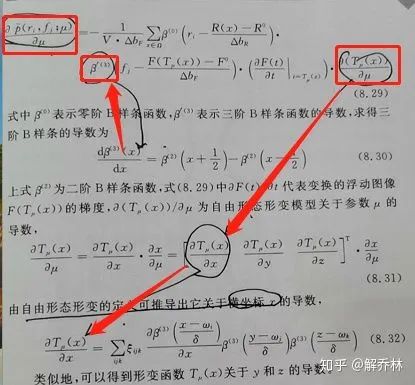 ∂ p̄(r_i, f_j; μ) / ∂μ = − 1 / (V · Δb_F) ∑_{x∈Ω} β^(0) (r_i − (R(x) − R⁰) / Δb_R) ·
β′^(3) (f_j − (F(T_μ(x)) − F⁰) / Δb_F) · (∂F(t)/∂t |_{t=T_μ(x)}) · ∂(T_μ(x)) / ∂μ
(8.29)
式中 β^(0) 表示零阶 B 样条函数, β′^(3) 表示三阶 B 样条函数的导数, 求得三
阶 B 样条的导数为
dβ^(3)(x) / dx = β^(2) (x + 1/2) − β^(2) (x − 1/2) (8.30)
上式 β^(2) 为二阶 B 样条函数, 式(8.29)中 ∂F(t)/∂t 代表变换的浮动图像
F(T_μ(x)) 的梯度, ∂(T_μ(x))/∂μ 为自由形态形变模型关于参数 μ 的
导数,
∂T_μ(x)/∂μ = ∂T_μ(x)/∂x · ∂x/∂μ = [∂T_μ(x)/∂x ∂T_μ(x)/∂y ∂T_μ(x)/∂z]^T · ∂x/∂μ
(8.31)
由自由形态形变的定义可推导出它关于横坐标 x 的导数,
∂T_μ(x)/∂x = ∑_{ijk} ξ_{ijk} ∂β^(3)((x − ω_i)/δ) / ∂x β^(3)((y − ω_j)/δ) β^(3)((z − ω_k)/δ) (8.32)
类似地, 可以得到形变函数 T_μ(x) 关于 y 和 z 的导数。
知乎 @解乔林